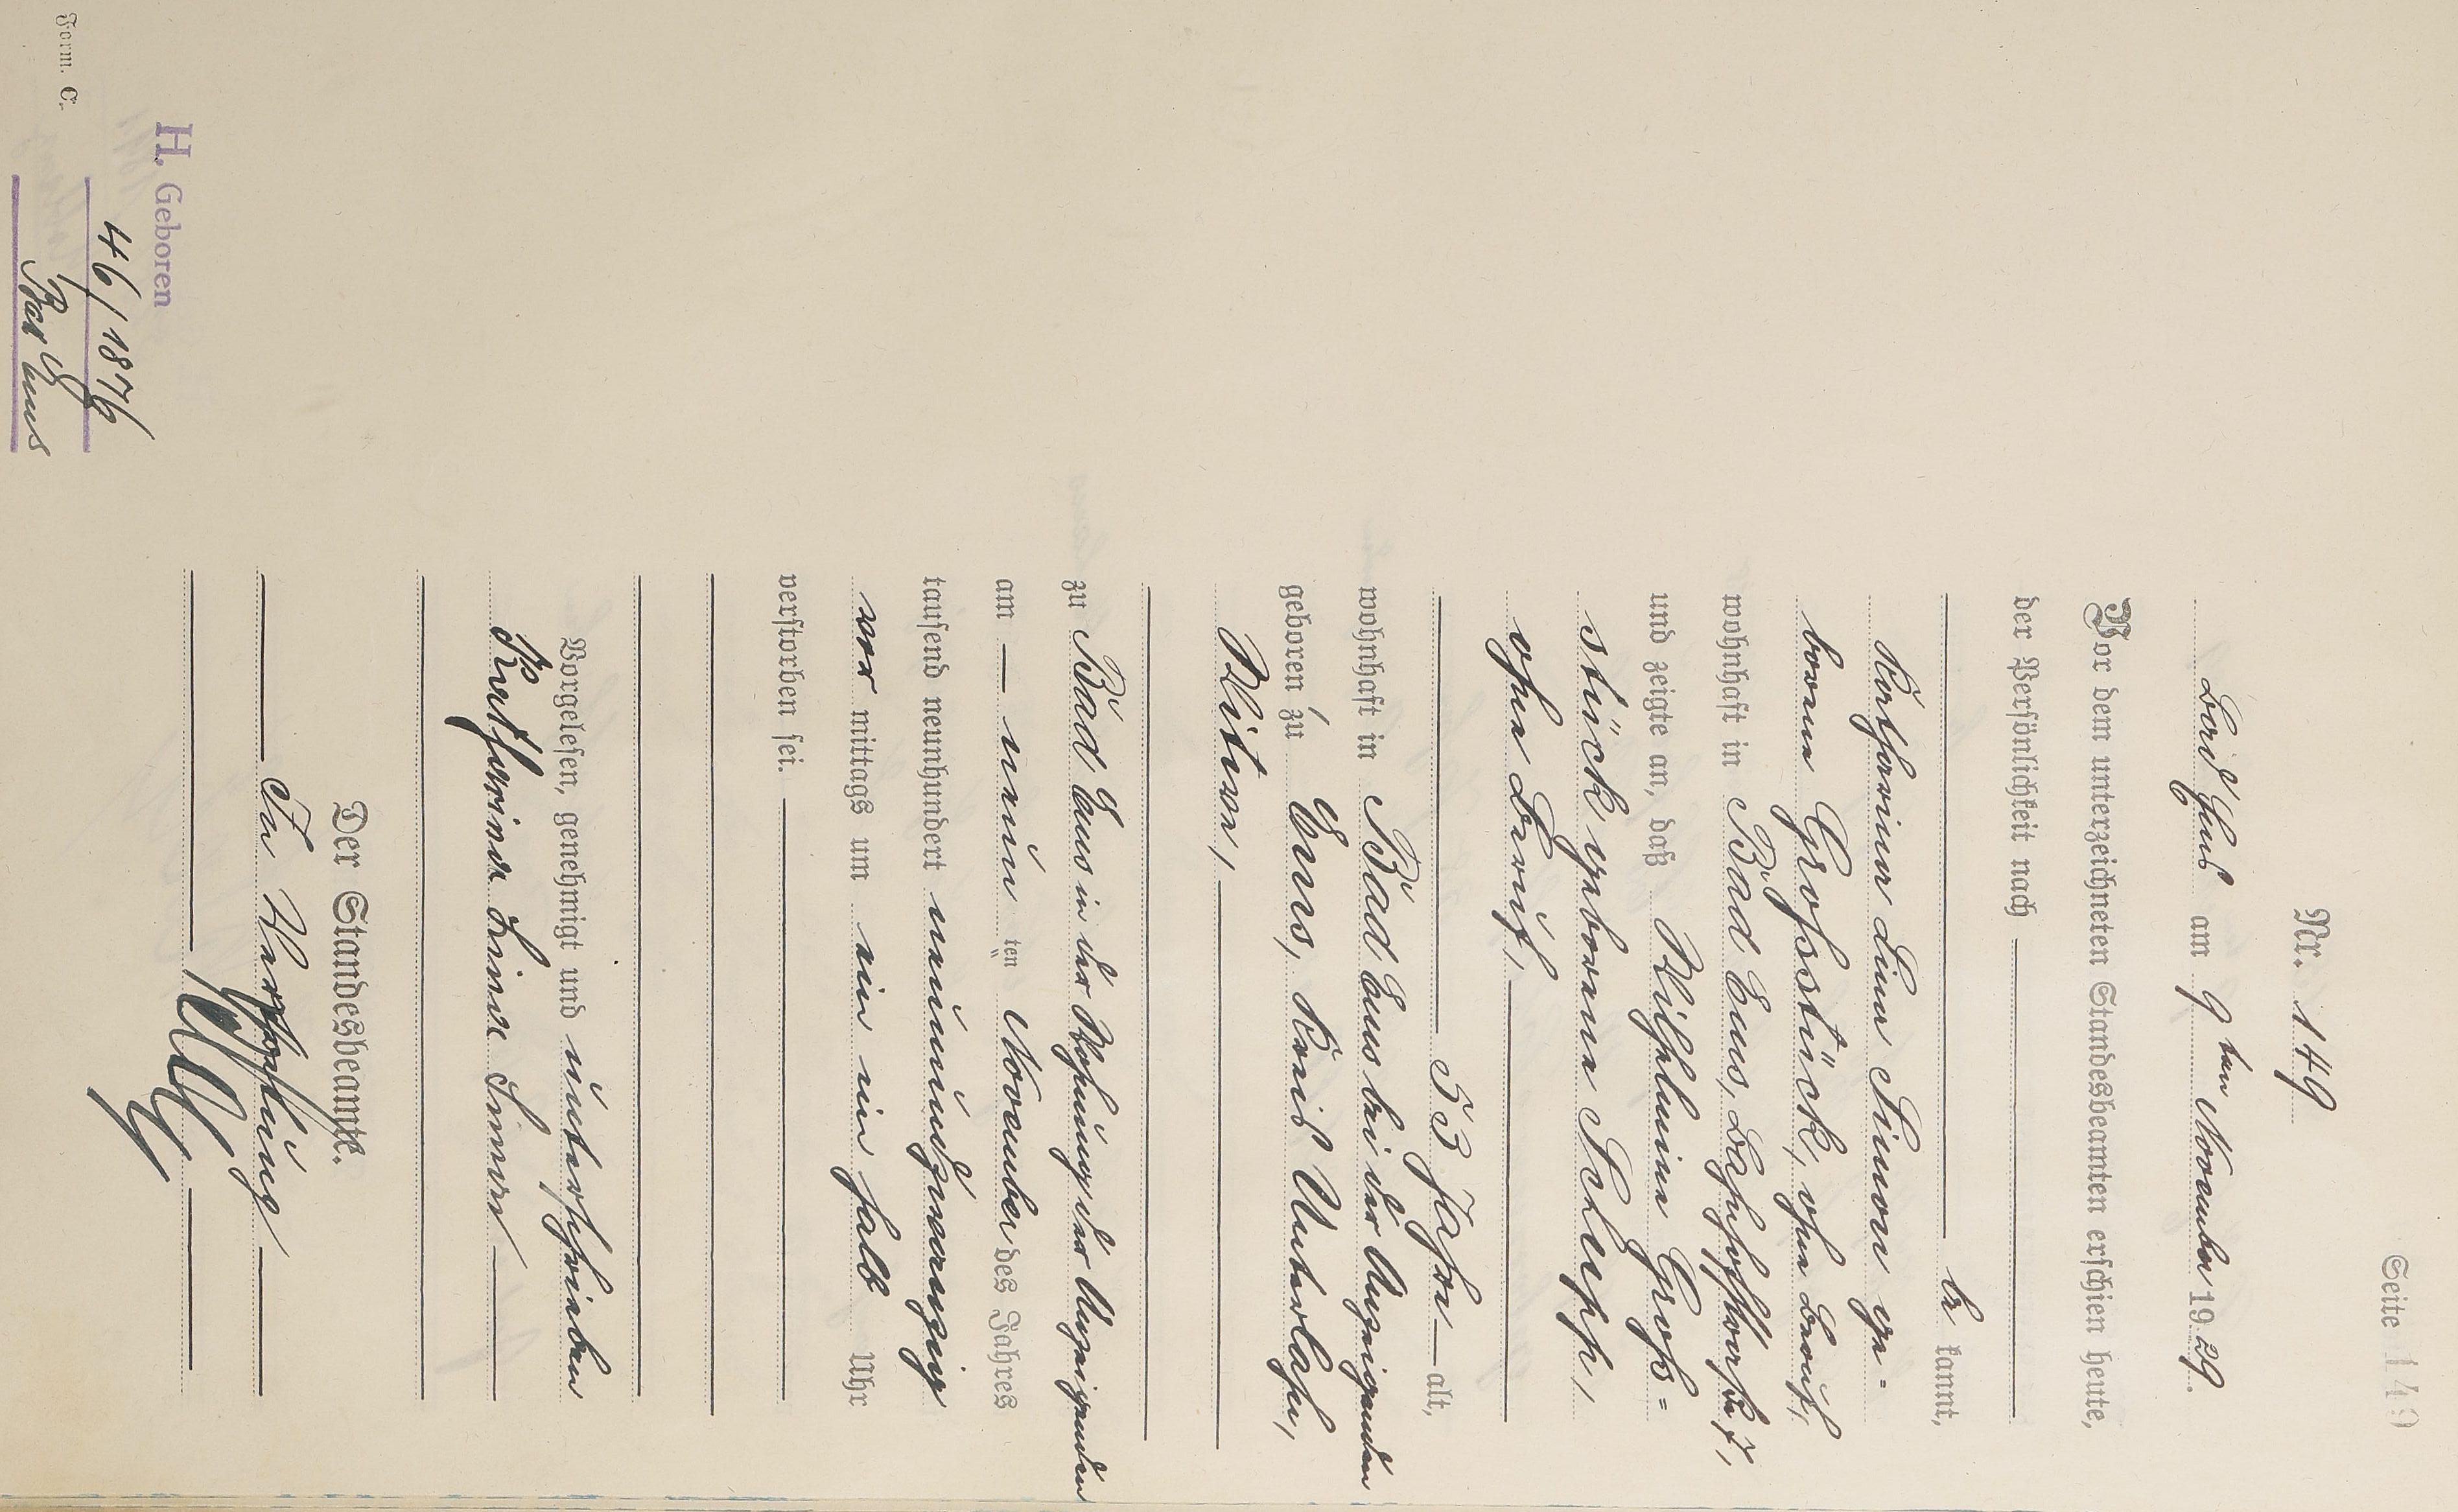 Seite 149
Nr. 149
Bad Ems am 9ten November 1929.
Vor dem unterzeichneten Standesbeamten erschien heute,
der Persönlichkeit nach
be kannt,
Katharina Lina Simon ge=
borene Großstück, ohne Beruf,
wohnhaft in Bad Ems, Bahnhofstraße 7,
und zeigte an, daß Wilhelmine Groß=
stück geborene Schupp,
ohne Beruf,
53 Jahre alt,
wohnhaft in Bad Ems bei der Anzeigenden
geboren zu Ems, Kreis Unterlahn,
Witwe,
zu Bad Ems in der Wohnung der Anzeigenden
am neun ten November des Jahres
tausend neunhundert neunundzwanzig
vor mittags um ein ein halb Uhr
verstorben sei.
Vorgelesen, genehmigt und unterschrieben
Katharina Lina Simon
Der Standesbeamte.
In Vertretung
H. Geboren
46/1876
Bad Ems
Form. C.